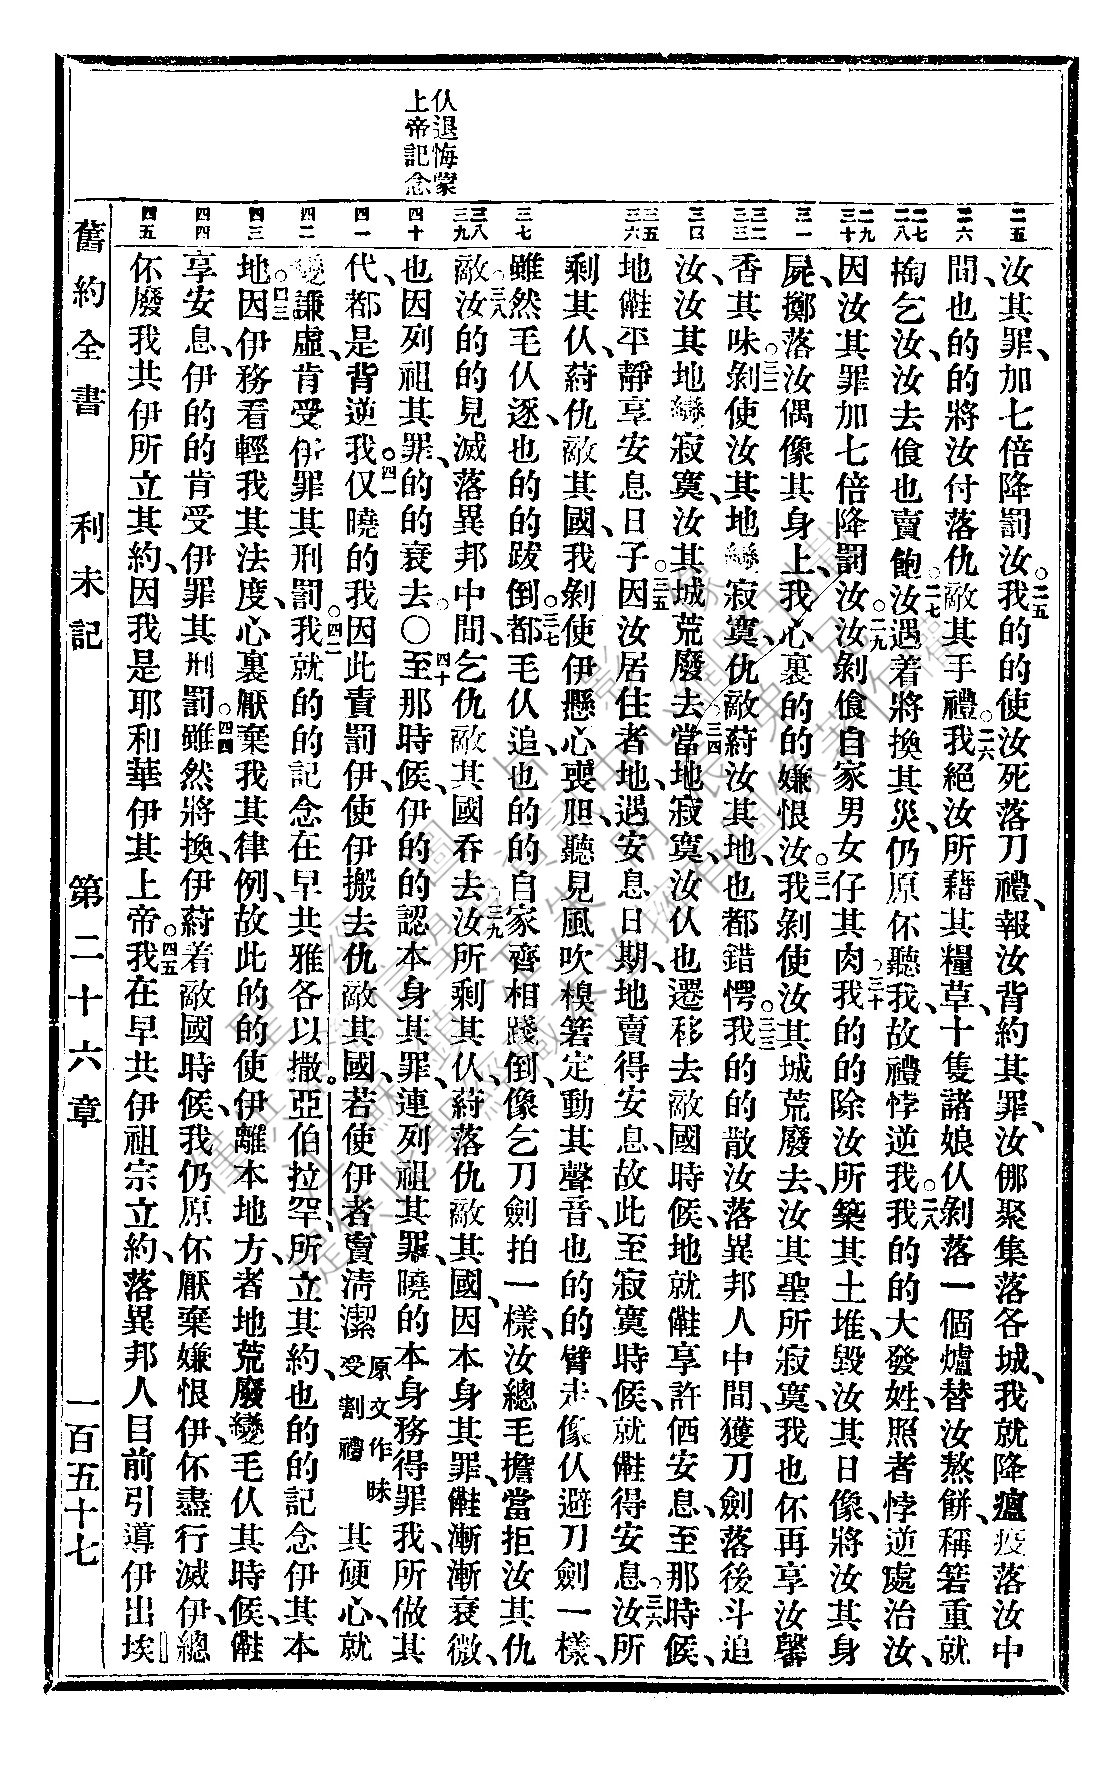 仈退悔蒙
上帝記念
汝其罪、加七倍降罰汝。二五我的的使汝死落刀禮、報汝背約其罪、汝㑚聚集落各城、我就降瘟疫落汝中
間、也的的將汝付落仇敵其手禮。二六我絕汝所藉其糧草、十隻諸娘仈剝落一個爐替汝熬餅、稱箬重就
掏乞汝、汝去飡也賣飽。二七汝遇着將換其災、仍原伓聽我、故禮悖逆我。二八我的的大發姓、照者悖逆處治汝、
因汝其罪加七倍降罰汝、二九汝剝飡自家男女仔其肉。三十我的的除汝所築其土堆、毀汝其日像、將汝其身
屍擲落汝偶像其身上、我心裏的的嫌恨汝。三一我剝使汝其城荒廢去、汝其聖所寂寞、我也伓再享汝馨
香其味。三二剝使汝其地變寂寞、仇敵䔭汝其地、也都錯愕。三三我的的散汝落異邦人中間、獲刀劍落後斗追
汝、汝其地變寂寞、汝其城荒廢去。三四當地寂寞、汝仈也遷移去敵國時候、地就㑚享許㑚安息、至那時候、
地㑚平靜享安息日子、三五因汝居住者地、遇安息日期、地賣得安息、故此至寂寞時候、就㑚得安息。三六汝所
剩其仈、䔭仇敵其國、我剝使伊懸心喪胆、聽見風吹模箬定動其聲音、也的的臂走、像仈避刀劍一樣、
雖然毛仈逐、也的的跋倒。三七都毛仈追、也的的自家齊相踐倒、像乞刀劍拍一樣、汝總毛擔當拒汝其仇
敵。三八汝的的見滅落異邦中間、乞仇敵其國吞去。三九汝所剩其仈、䔭落仇敵其國、因本身其罪、㑚漸漸衰微、
也因列祖其罪、的的衰去。○四十至那時候、伊的的認本身其罪、連列祖其罪、曉的本身務得罪我、所做其
代、都是背逆我。四一仅曉的我因此責罰伊、使伊搬去仇敵其國、若使伊者賣淸潔原文作昧受割禮其硬心、就
變謙虛、肯受伊罪其刑罰。四二我就的的記念在早共雅各以撒。亞伯拉罕、所立其約、也的的記念伊其本
地。四三因伊務看輕我其法度、心裏厭棄我其律例、故此的的使伊離本地方、者地荒廢變毛仈其時候、㑚
享安息、伊的的肯受伊罪其刑罰。四四雖然將換、伊䔭着敵國時候、我仍原伓厭棄嫌恨伊、伓盡行滅伊、總
伓廢我共伊所立其約、因我是耶和華伊其上帝。四五我在早共伊祖宗立約、落異邦人目前引導伊出埃
舊約全書　利未記　第二十六章　一百五十七